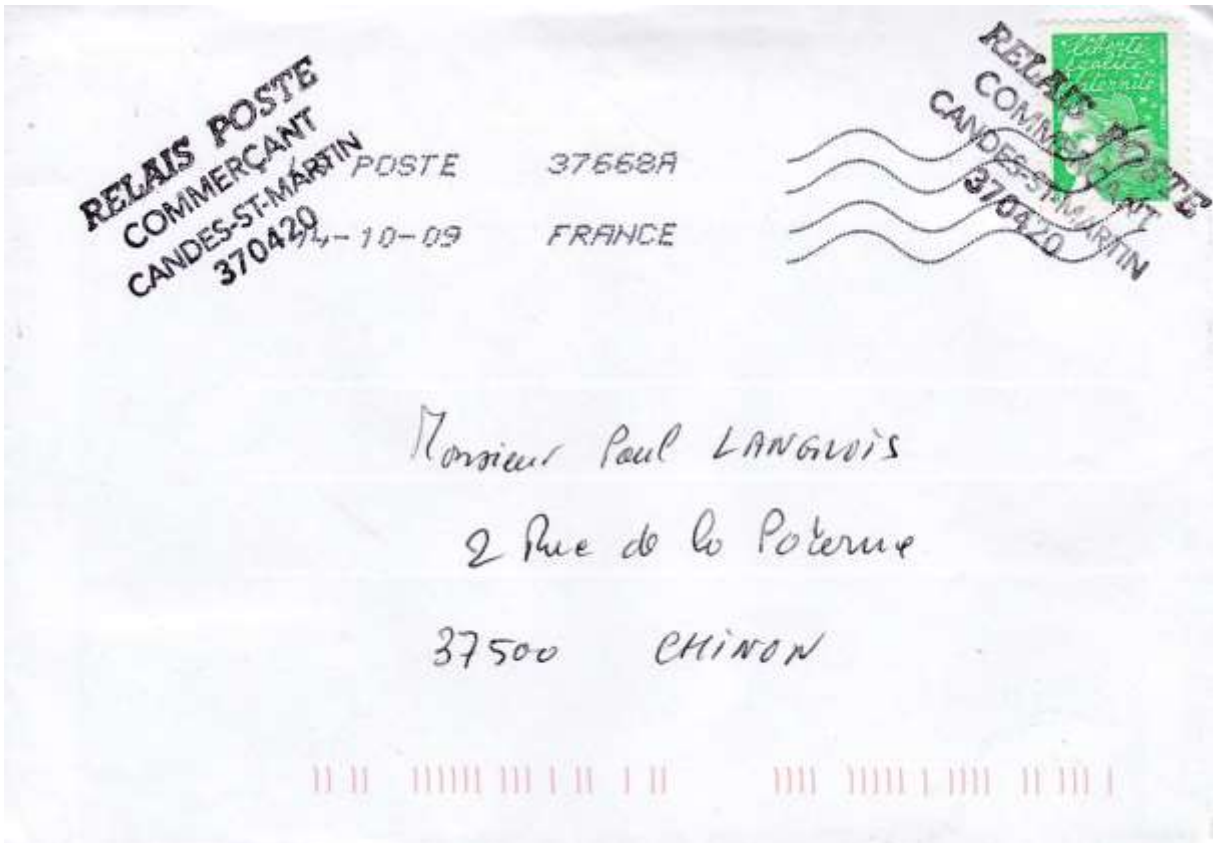 RELAIS POSTE
COMMERÇANT
CANDES-ST-MARTIN
370420
POSTE 37668A
14-10-09 FRANCE
RELAIS POSTE
COMMERÇANT
CANDES-ST-MARTIN
370420
liberté
égalité
fraternité
Monsieur Paul LANGLOIS
2 Rue de la Poterne
37500 CHINON